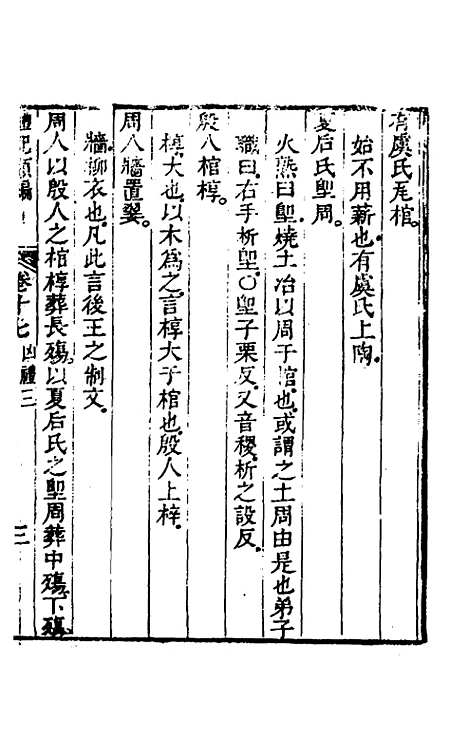 有虞氏瓦棺
始不用薪也有虞氏上陶
夏后氏堲周
火熟曰堲燒土冶以周于棺也或謂之土周由是也弟子
職曰右手折堲〇堲子栗反又音稷折之設反
殷人棺椁
椁大也以木為之言椁大于棺也殷人上梓
周人牆置翣
牆柳衣也凡此言後王之制文
周人以殷人之棺椁葬長殤以夏后氏之堲周葬中殤下殤
禮記類編 卷十七 凶禮三 三